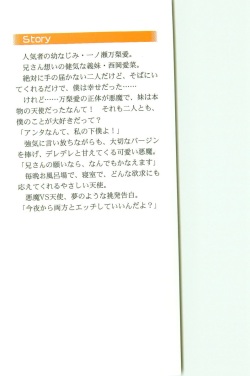 Story
人気者の幼なじみ・一ノ瀬万梨愛。
兄さん想いの健気な義妹・西岡愛菜。
絶対に手の届かない二人だけど、そばにい
てくれるだけで、僕は幸せだった……
けれど……万梨愛の正体が悪魔で、妹は本
物の天使だったなんて！　それも二人とも、
僕のことが大好きだって？
「アンタなんて、私の下僕よ！」
強気に言い放ちながらも、大切なバージン
を捧げ、デレデレと甘えてくる可愛い悪魔。
「兄さんの願いなら、なんでもかなえます」
毎晩お風呂場で、寝室で、どんな欲求にも
応えてくれるやさしい天使。
悪魔VS天使、夢のような挑発告白。
「今夜から両方とエッチしていいんだよ？」